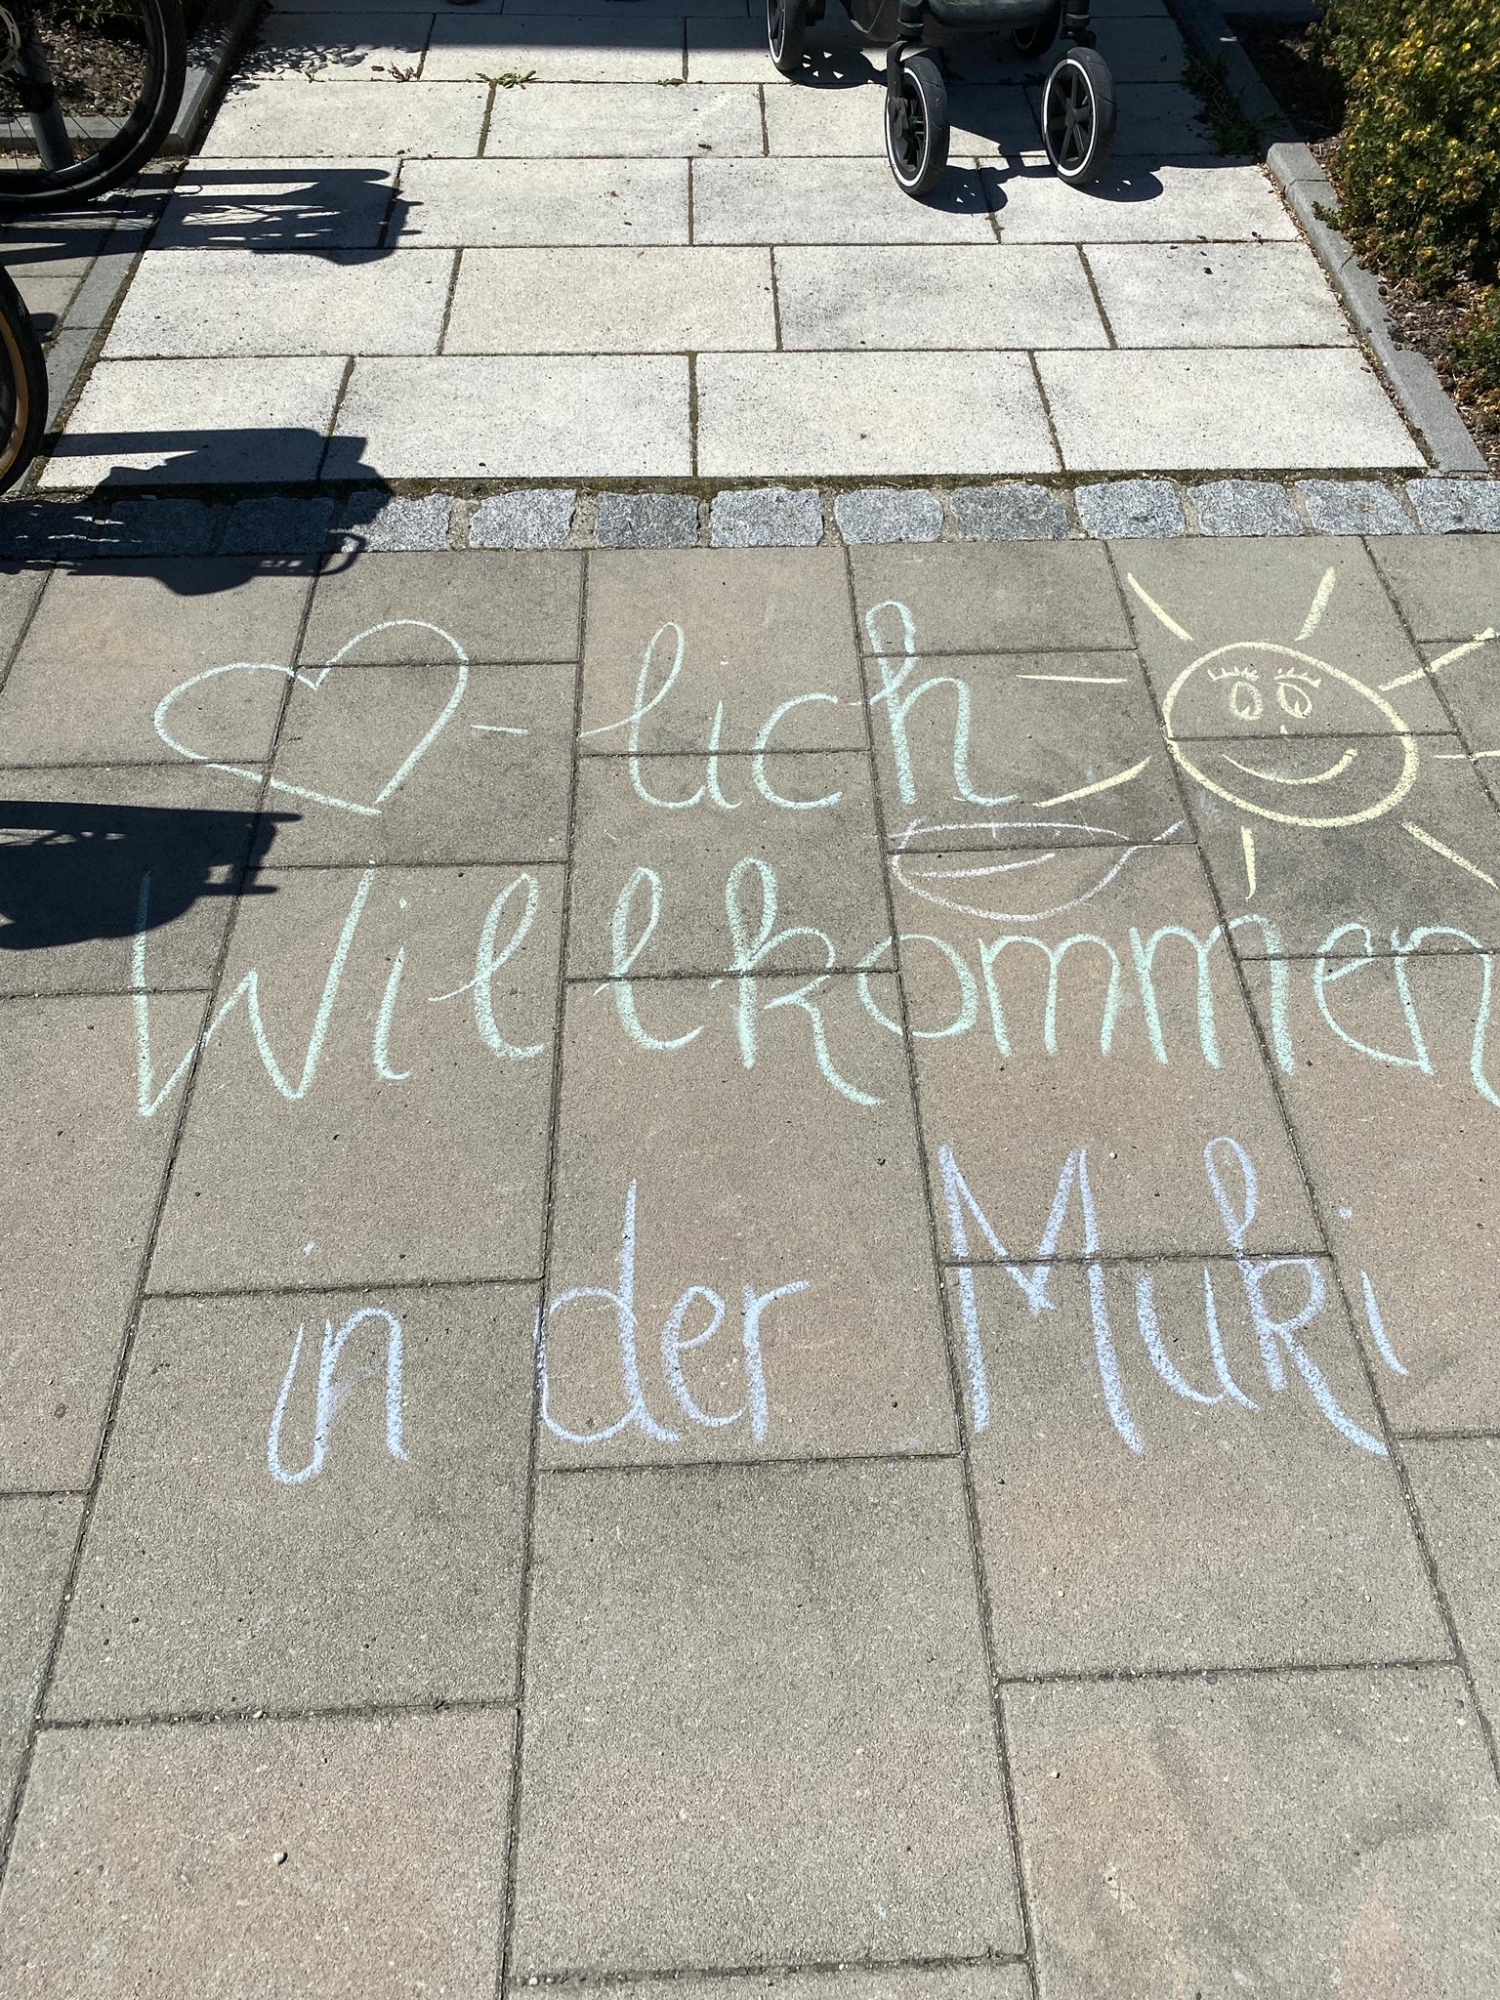 ♡-lich
Willkommen
in der Muki